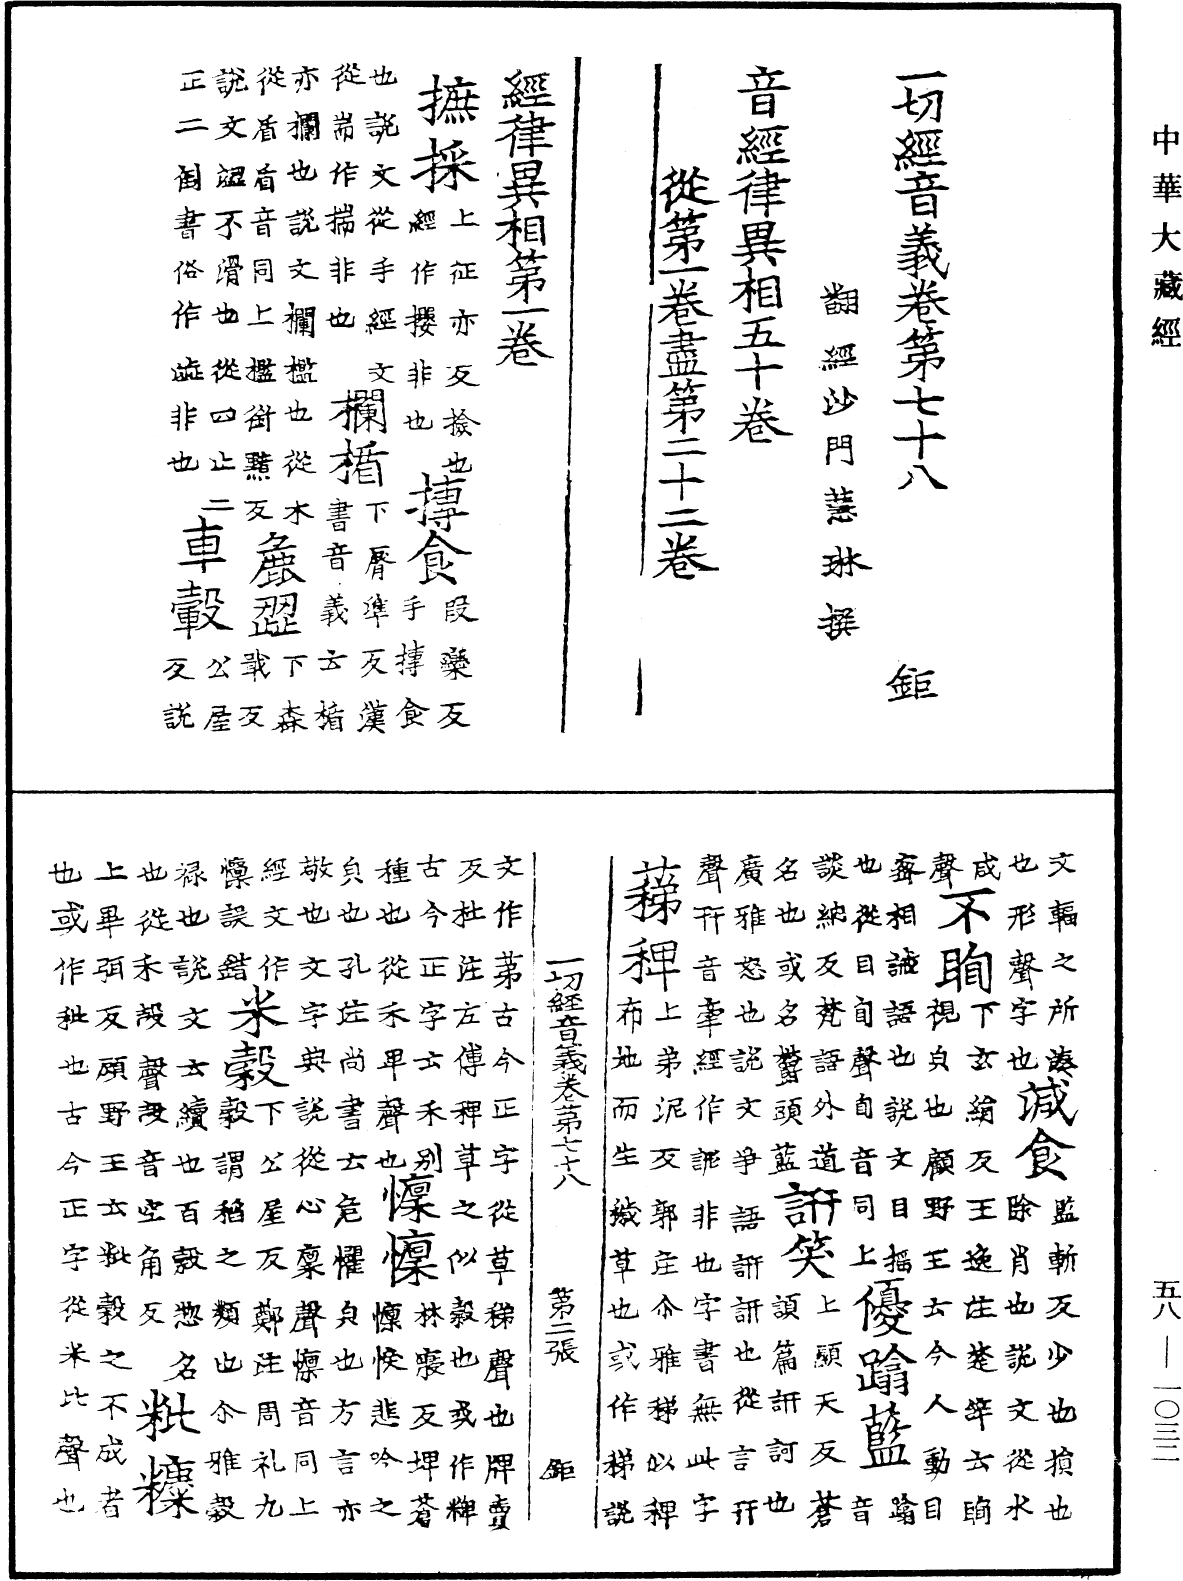 中華大藏經
一切經音義卷第七十八 鉅
翻經沙門慧琳撰
音經律異相五十卷
從第一卷盡第二十二卷
經律異相第一卷
摭採上征亦反撿也摶食段欒反
經作攖非也手摶食
也說文從手經文欄楯下脣準反漢
從耑作揣非也書音義云楯
亦欄也說文欄檻也從木麁澀下森
從盾盾音同上檻銜黯反戢反
說文澀不滑也從四止二車轂公屋
正二倒書俗作澁非也反說
文輻之所湊減食監斬反少也損也
也形聲字也除肖也說文從水
咸聲不眴下玄絹反王逸注楚辝云眴
視皃也顧野王云今人動目
密相誡語也說文目搖優蹹藍蹹音
也從目旬聲旬音同上
談納反梵語外道訮笑上顯天反蒼
名也或名欝頭藍頡篇訮訶也
廣雅怒也說文爭語訮訮也從言幵
聲幵音牽經作詽非也字書無此字
蕛稗上弟泥反郭注尒雅蕛似稗
布地而生穢草也或作稊說
一切經音義卷第七十八 第二張 鉅
文作苐古今正字從草稊聲也牌賣
反杜注左傳稗草之似穀也或作粺
古今正字云禾別懍懍林禀反埤蒼
種也從禾卑聲也懍悷悲吟之
皃也孔注尚書云危懼皃也方言亦
敬也文字典說從心禀聲懍音同上
經文作米穀下公屋反鄭注周礼九
懍誤錯穀謂稻之類也尒雅穀
祿也說文云續也百穀惣名粃糠
也從禾㱿聲㱿音空角反
上畢弭反顧野王云粃穀之不成者
也或作秕也古今正字從米比聲也
五八—一〇三二